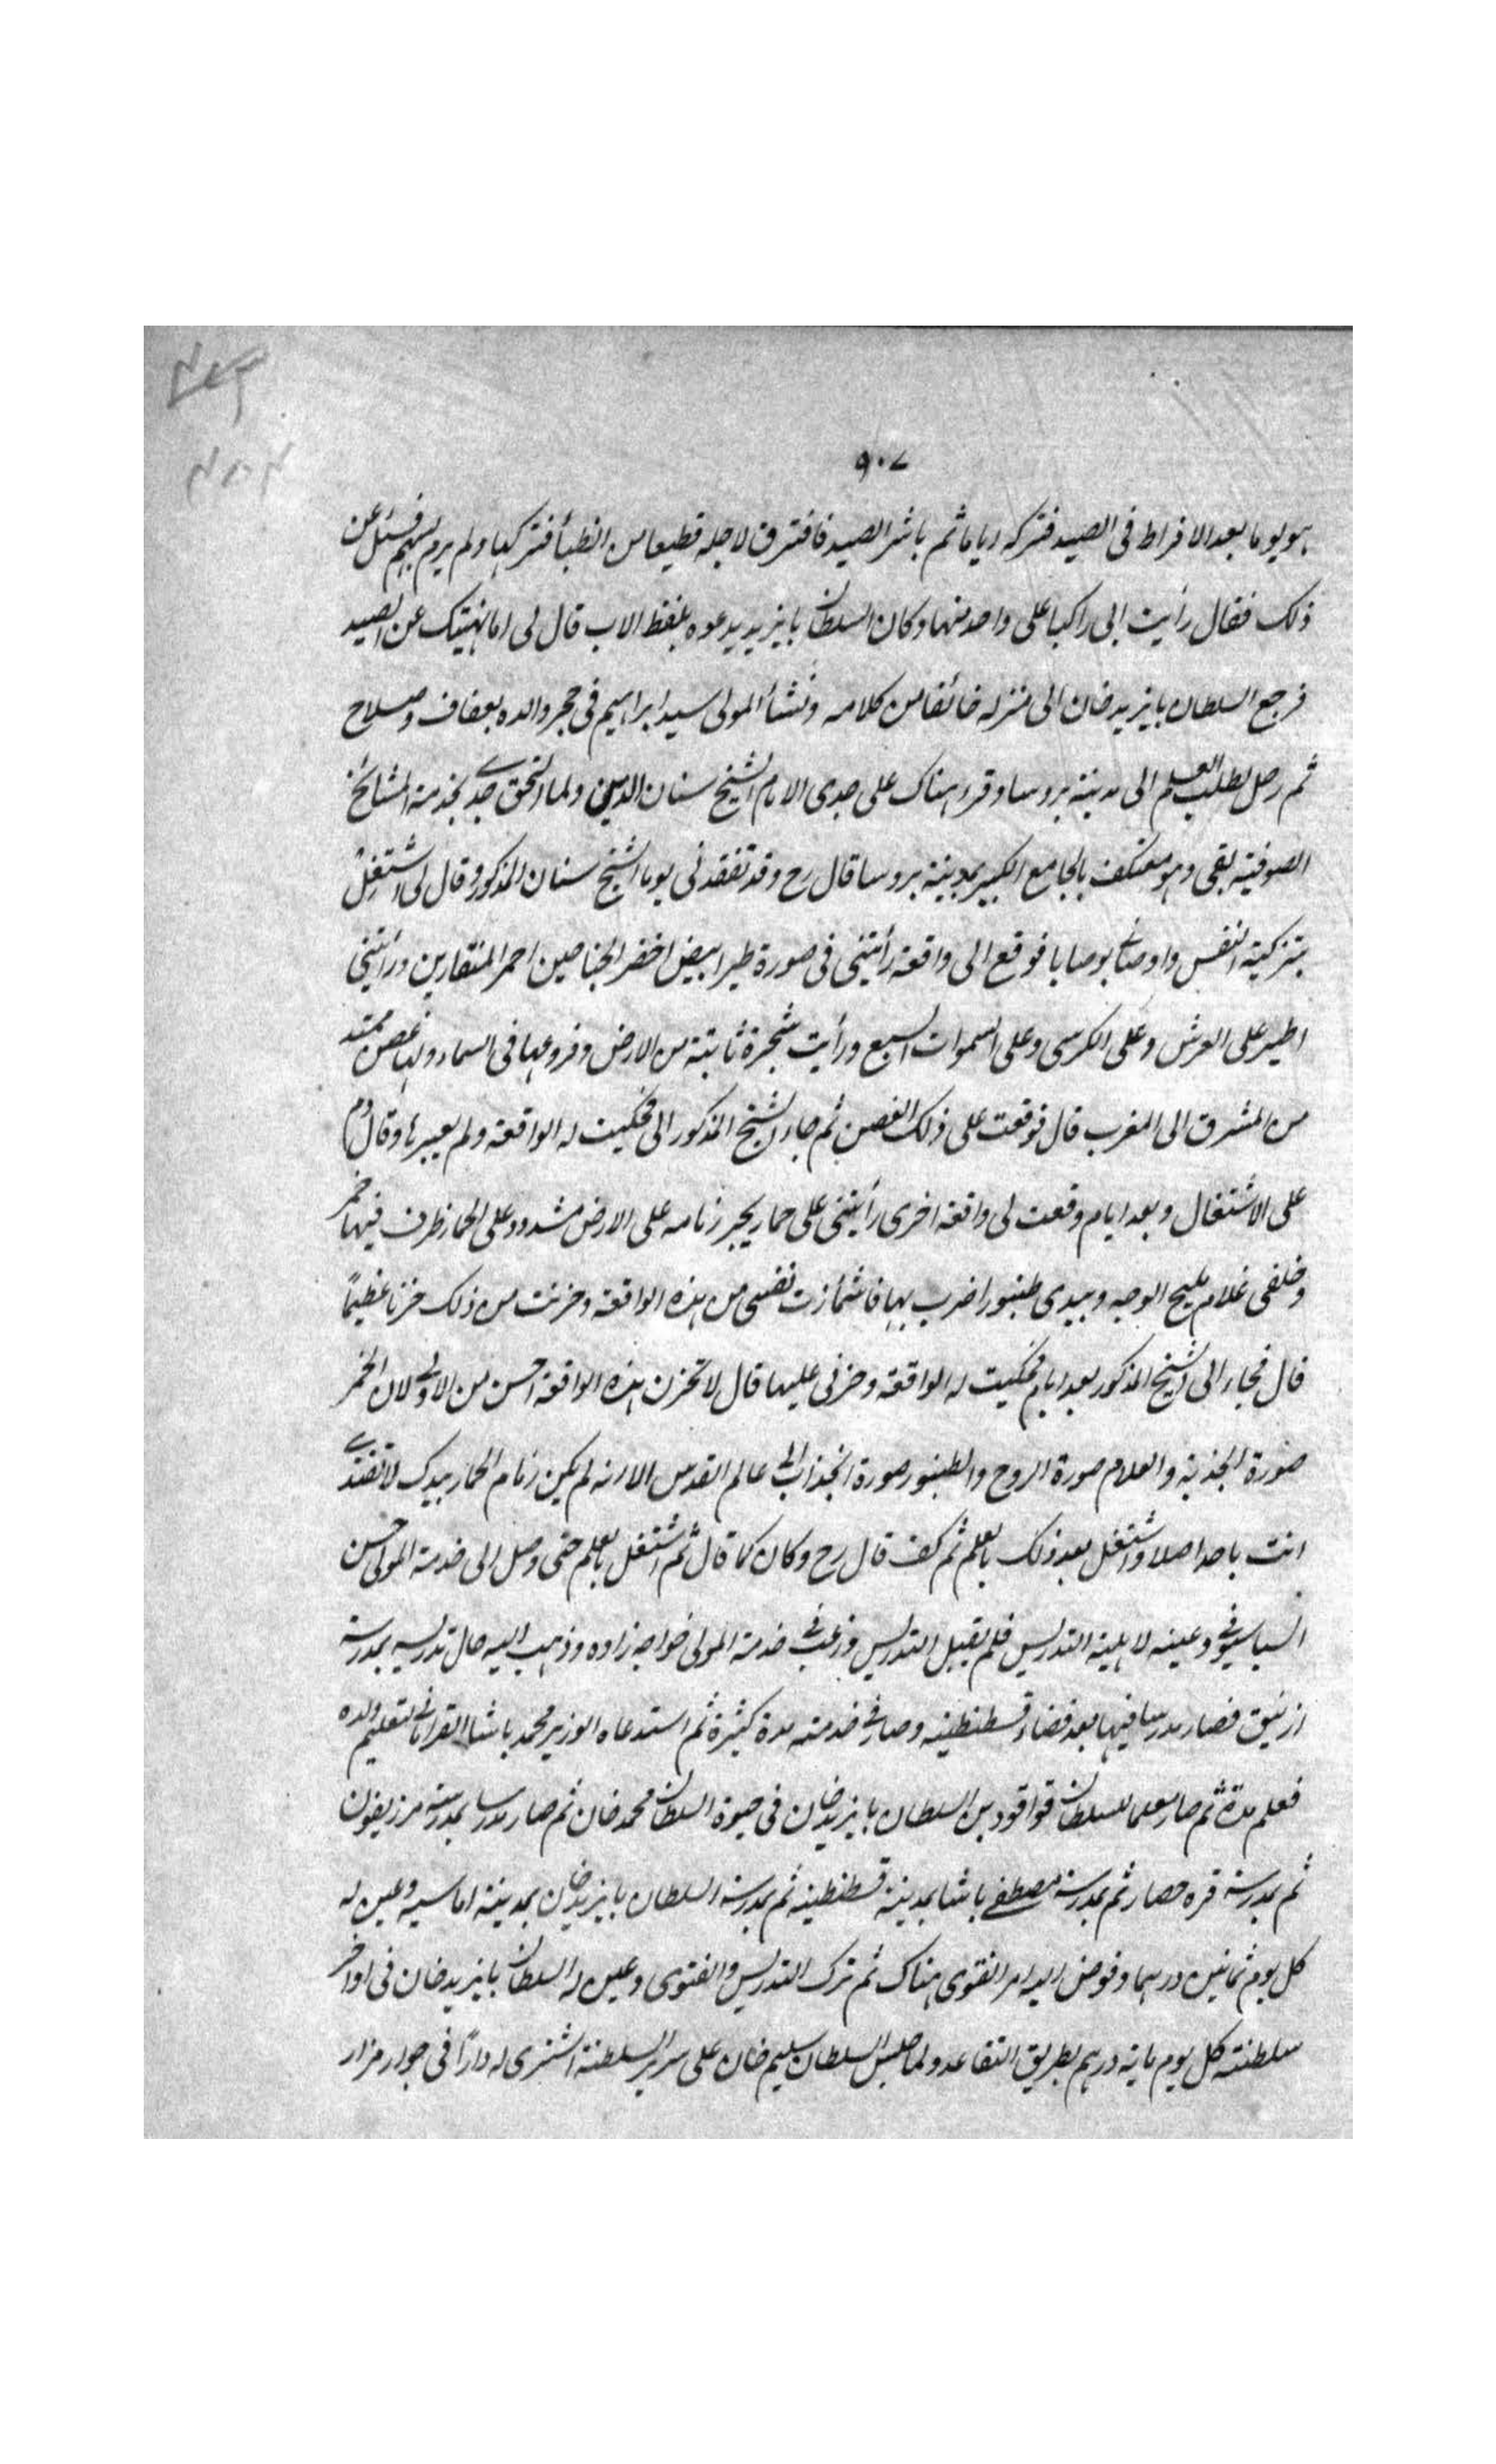 ٩٠٧
هو يوما بعد الافراط فى الصيد فتركه اياما ثم باشر الصيد فافترق لاجله قطيعا من الظبأ فتركها ولم يرم بسهم فسئل عن
ذلك فقال رأيت ابى راكبا على واحد منها وكان السلطان بايزيد يدعوه بلفظ الاب قال لى اما نهيتك عن الصيد
فرجع السلطان بايزيد خان الى منزله خائفا من كلامه ونشأ المولى سيد ابراهيم فى حجر والده بعفاف وصلاح
ثم رحل لطلب العلم الى مدينة بروسا وقرء هناك على جدى الامام الشيخ سنان الدين ولما التحق جدى بخدمة المشائخ
الصوفية بقى وهو معتكف بالجامع الكبير بمدينة بروسا قال رح وقد تفقدنى يوما الشيخ سنان المذكور وقال لى اشتغل
بتزكية النفس واوصانى بوصايا فوقع الى واقعة رأيتنى فى صورة طير ابيض اخضر الجناحين احمر المنقارين ورأيتنى
اطير على العرش وعلى الكرسى وعلى السموات السبع ورأيت شجرة ثابتة من الارض وفروعها فى السماء ولها غصن ممتد
من المشرق الى المغرب قال فوقعت على ذلك الغصن ثم جاء الشيخ المذكور الى فحكيت له الواقعة ولم يعبرها وقال دم
على الاشتغال وبعد ايام وقعت لى واقعة اخرى رأيتنى على حمار يجر زمامه على الارض مشدود على الحمار ظرف فيها خمر
وخلفى غلام مليح الوجه وبيدى طنبور اضرب بها فاشمأزت نفسى من هذه الواقعة وحزنت من ذلك حزنا عظيما
قال فجاء الى الشيخ المذكور بعد ايام فحكيت له الواقعة وحزنى عليها قال لا تحزن هذه الواقعة احسن من الاولى لان الخمر
صورة الجذبة والغلام صورة الروح والطنبور صورة انجذاب الى عالم القدس الا انه لم يكن زمام الحمار بيدك لا تقتدى
انت باحد اصلا واشتغل بعد ذلك بالعلم ثم كف قال رح وكان كما قال ثم اشتغل بالعلم حتى وصل الى خدمة المولى حسن
السباسيوفى وعينه لاهلية التدريس فلم يقبل التدريس ورغب فى خدمة المولى خواجه زاده وذهب اليه حال تدريسه بمدرسة
ازنيق فصار مدرسا فيها بعد قضاء قسطنطنيه وصار فى خدمته مدة كثيرة ثم استدعاه الوزير محمد باشا القرامانى لتعليم ولده
فعلم مدة ثم صار معلما للسلطان قواقود بن السلطان بايزيد خان فى حيوة السلطان محمد خان ثم صار مدرسا بمدرسة مرزيفون
ثم بمدرسة قره حصار ثم بمدرسة مصطفى باشا بمدينة قسطنطنيه ثم بمدرسة السلطان بايزيد خان بمدينة اماسيه وعين له
كل يوم ثمانين درهما وفوض اليه امر الفتوى هناك ثم ترك التدريس والفتوى وعين له السلطان بايزيد خان فى اواخر
سلطنته كل يوم مأية درهم بطريق التقاعد ولما جلس السلطان سليم خان على سرير السلطنة اشترى له دارا فى جوار مزار